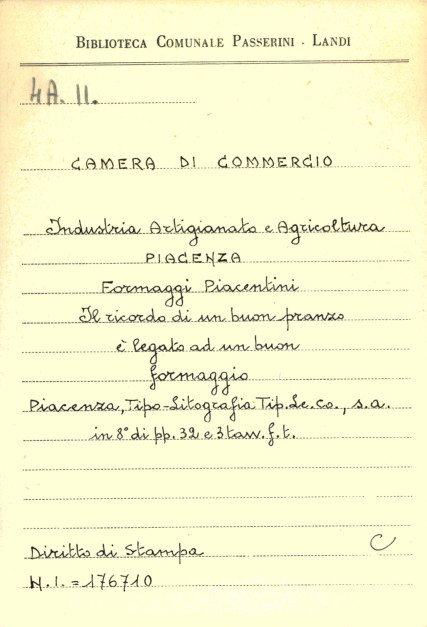 BIBLIOTECA COMUNALE PASSERINI - LANDI
4A. II.
CAMERA DI COMMERCIO
Industria Artigianato e Agricoltura
PIACENZA
Formaggi Piacentini
Il ricordo di un buon pranzo
è legato ad un buon
formaggio
Piacenza, Tipo-Litografia Tip.Le.Co., s.a.
in 8° di pp. 32 e 3 tavv. f. t.
Diritto di Stampa
C
N.I. = 176710